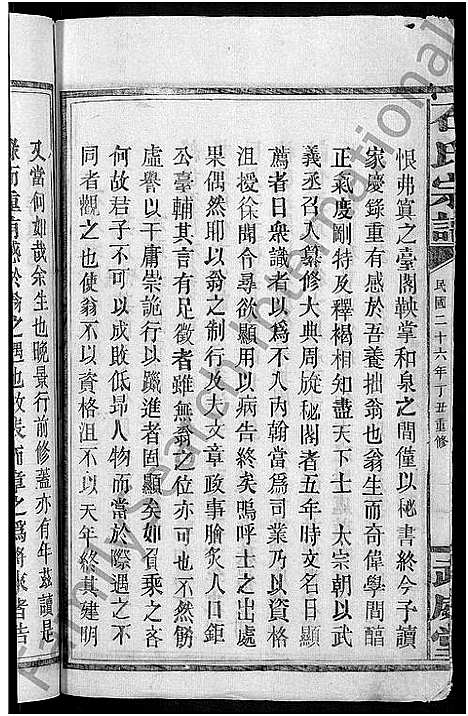 石氏宗譜
民國二十六年丁丑重修
武威堂
恨弗寘之臺閣鞅掌和泉之間僅以秘書終今予讀
家慶錄重有感於吾養拙翁也翁生而奇偉學問醞
正氣度剛特及釋褐相知盡天下士 太宗朝以武
義丞召入纂修大典周旋秘閣者五年時文名日顯
薦者日衆識者以為不入內翰當為司業乃以資格
沮授徐聞令尋欲顯用以病告終矣嗚呼士之出處
果偶然耶以翁之制行及夫文章政事膾炙人口鉅
公臺輔其言有足徵者雖無翁之位亦可也不然勝
虛譽以干庸崇詭行以躐進者固顯矣如負乘之吝
何故君子不可以成敗低昂人物而當於際遇之不
同者觀之也使翁不以資格沮不以天年終其建明
又當何如哉余生也晚景行前修蓋亦有年茲讀是
錄而重有感於翁之遇也故表而章之為將來者告